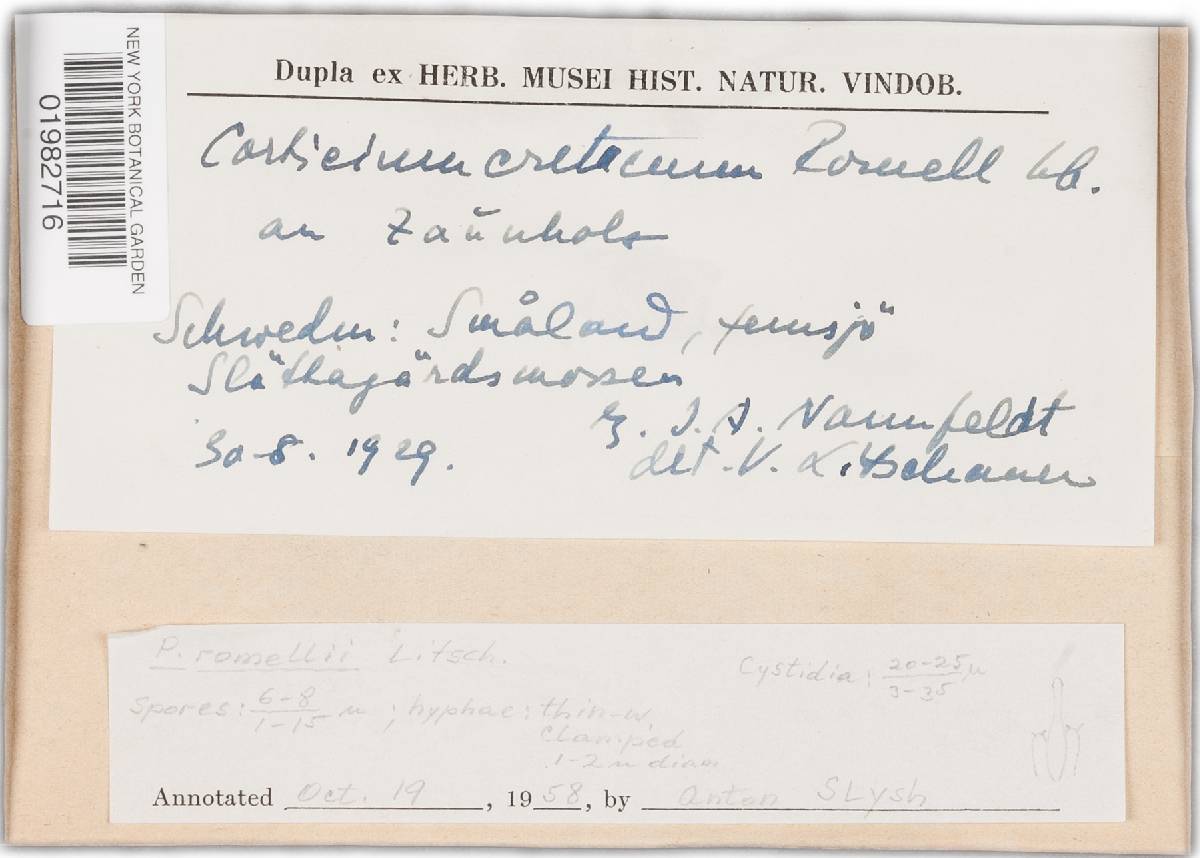 NEW YORK BOTANICAL GARDEN
01982716
Dupla ex HERB. MUSEI HIST. NATUR. VINDOB.
Corticium cretaceum Romell hb.
an Zaŭnholz
Schweden: Småland, Femsjö
Slättagärdsmossen
30-8. 1929.
lg. J. A. Nannfeldt
det. V. Litschauer
P. romellii Litsch.
Cystidia: 20-25 µ
3-35
Spores: 6-8 µ; hyphae: thin-w.
1-15
clamped
1-2 µ diam
Annotated Oct. 19, 1958, by Anton Slysh